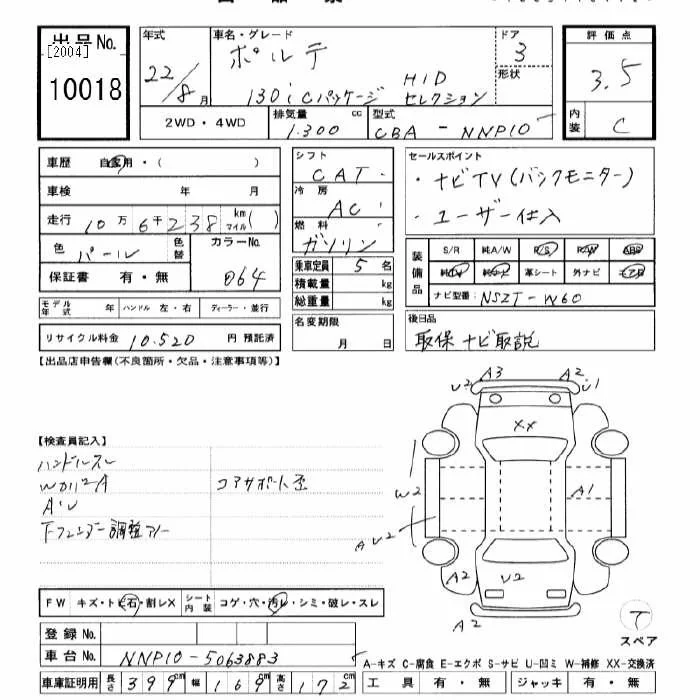 出品No.
[2004]
10018
年式
22/8月
車名・グレード
ポルテ
130i Cパッケージ HID セレクション
ドア
3
形状
評価点
3.5
内装
C
2WD・4WD
排気量
1.300 cc
型式
CBA - NNP10
車歴 自家用・( )
車検 年 月
走行 10万6千238 km マイル( )
色 パール 色替
カラーNo.
064
保証書 有・無
モデル年式 年 ハンドル 左・右 ディーラー・並行
リサイクル料金 10.520 円 預託済
シフト
CAT
冷房
AC
燃料
ガソリン
乗車定員 5 名
積載量 kg
総重量 kg
名変期限
月 日
セールスポイント
・ナビTV(バックモニター)
・ユーザー仕入
装備品
S/R 純A/W P/S P/W ABS
革シート 外ナビ
ナビ型番: NSZT-W60
後日品
取保 ナビ取説
【出品店申告欄(不良箇所・欠品・注意事項等)】
【検査員記入】
ハンドルスレ
コアサポート歪
A3 A2
U2 U1
XX
W2
A1
A U2
A2 U2
A2
T
スペア
FW キズ・トビ石・割レX シート内装 コゲ・穴・汚レ・シミ・破レ・スレ
登録No.
車台No. NNP10-5063883
車庫証明用 長さ 399cm 幅 169cm 高さ 172cm
A-キズ C-腐食 E-エクボ S-サビ U-凹ミ W-補修 XX-交換済
工具 有・無 ジャッキ 有・無